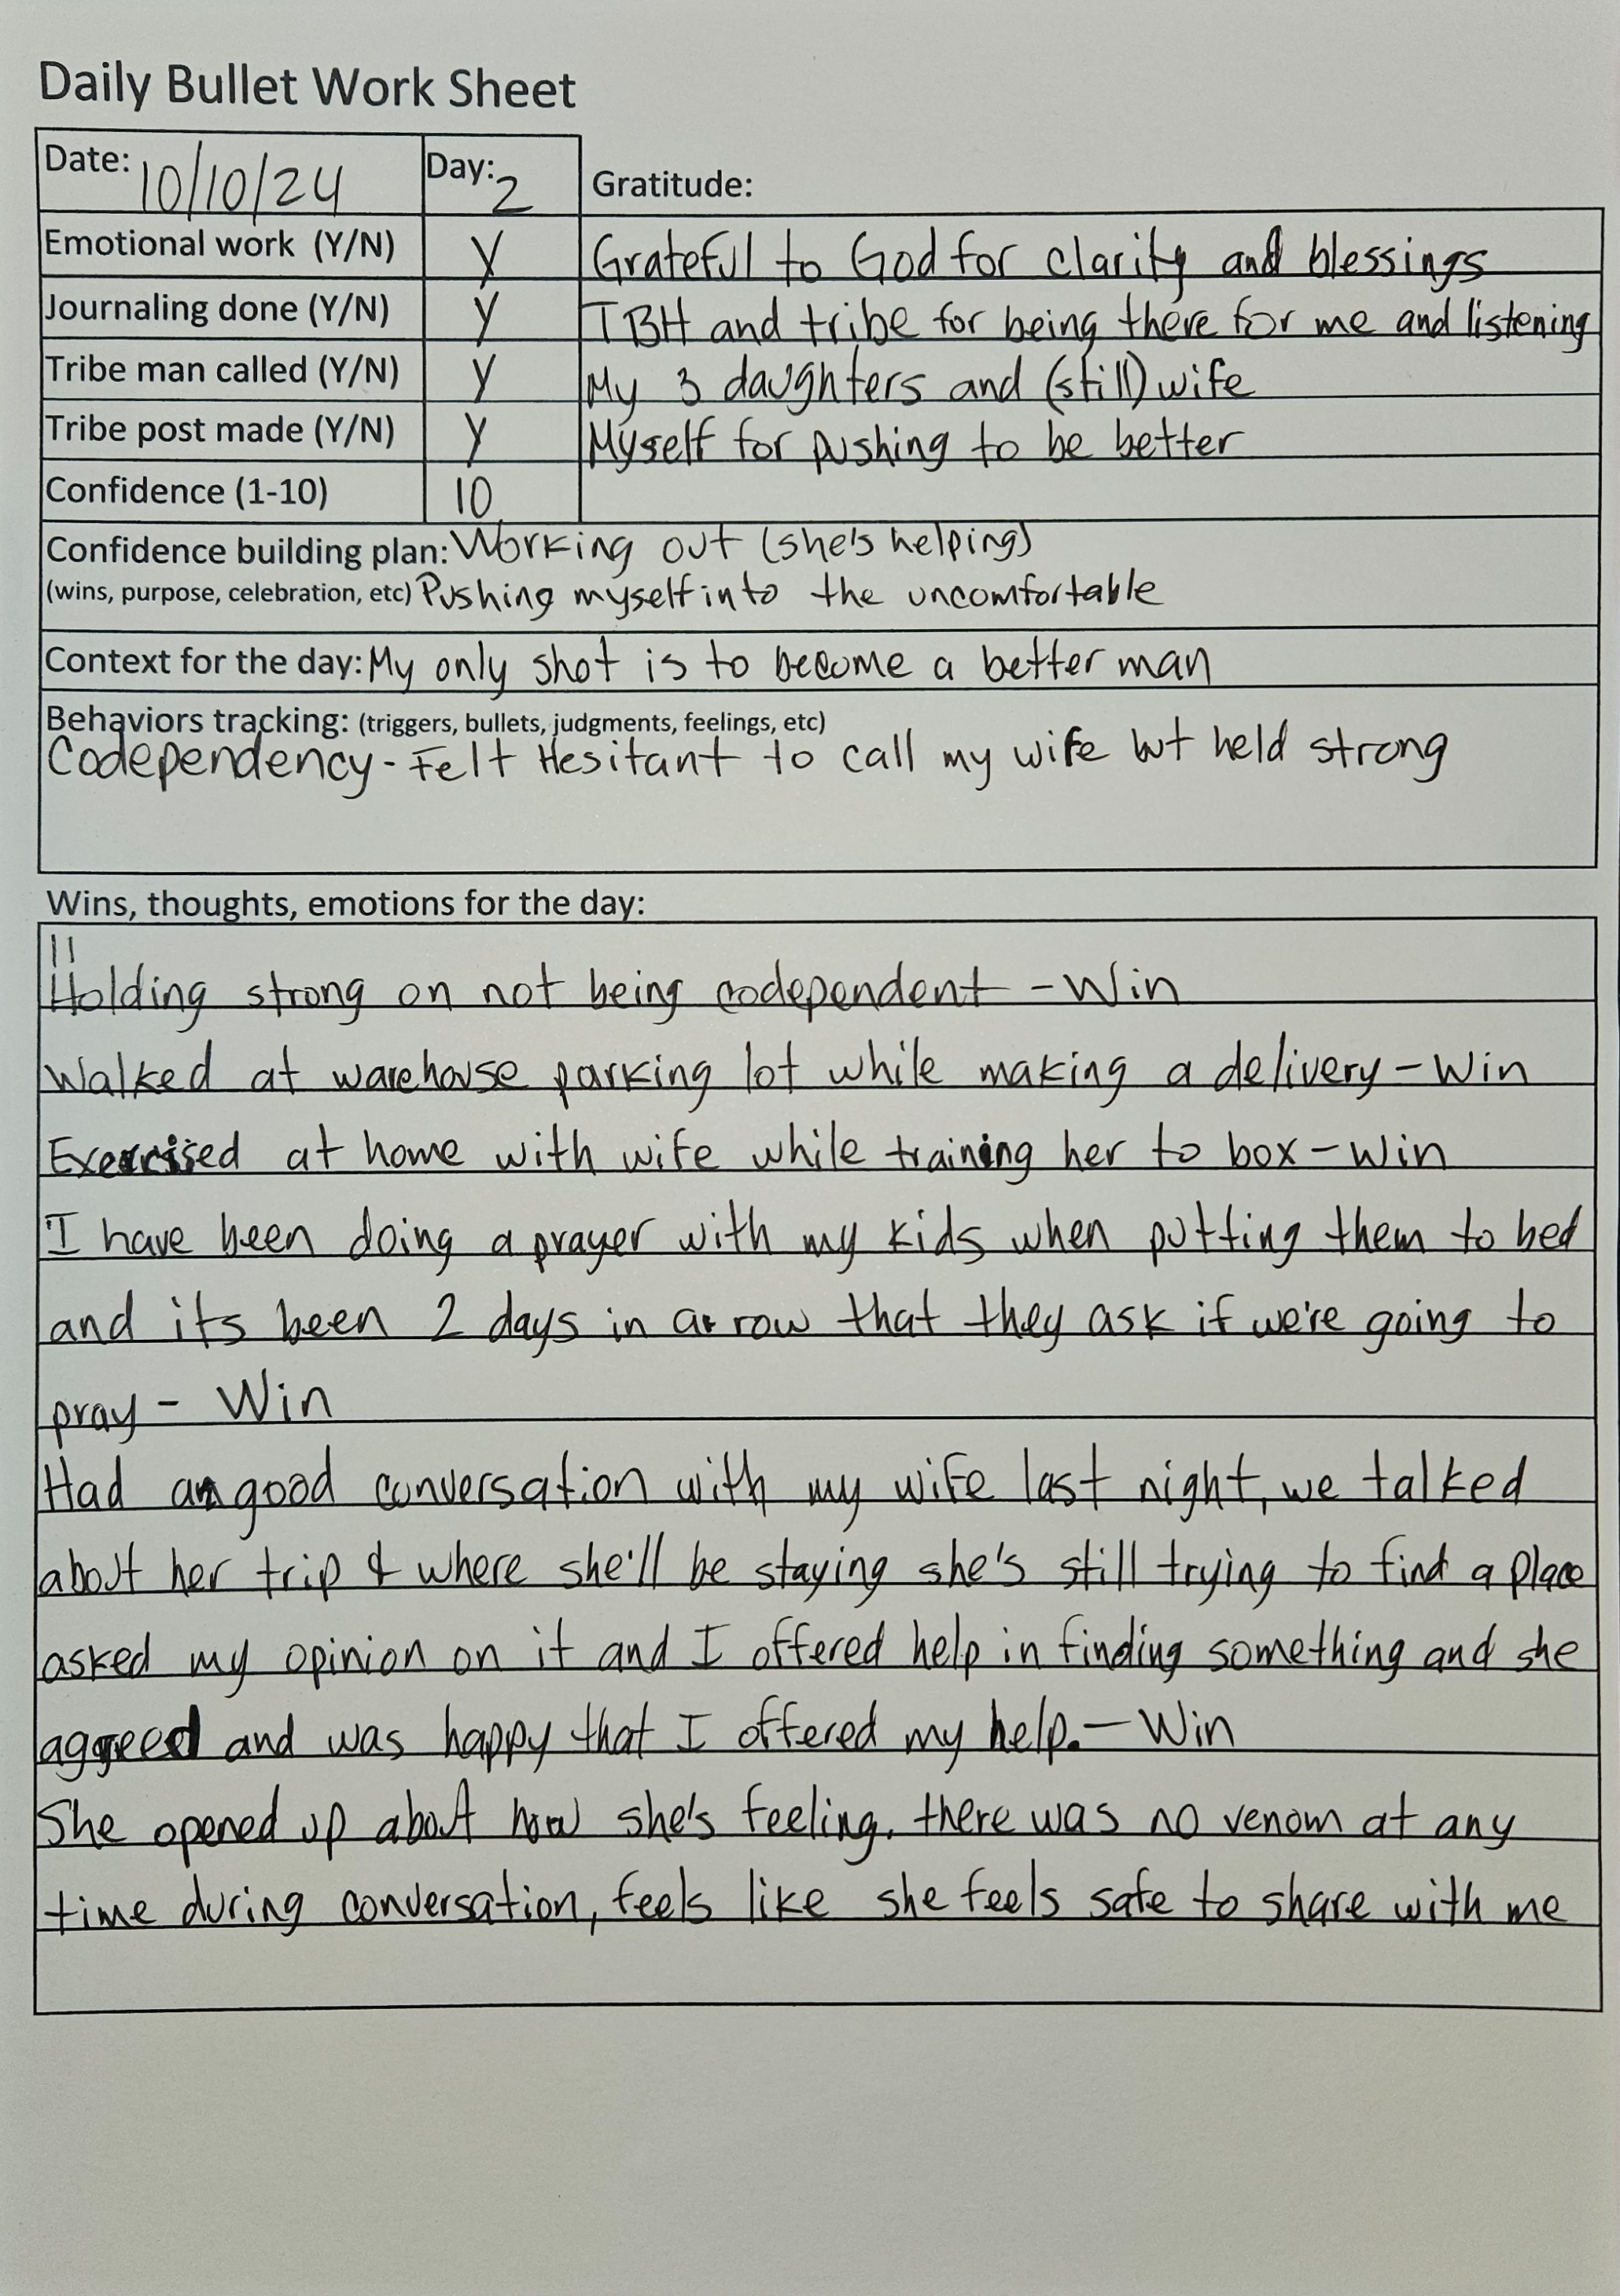 Daily Bullet Work Sheet
Date: 10/10/24 Day: 2 Gratitude:
Emotional work (Y/N) Y Grateful to God for clarity and blessings
Journaling done (Y/N) Y TBH and tribe for being there for me and listening
Tribe man called (Y/N) Y My 3 daughters and (still) wife
Tribe post made (Y/N) Y Myself for pushing to be better
Confidence (1-10) 10
Confidence building plan: Working out (she's helping)
(wins, purpose, celebration, etc) Pushing myself into the uncomfortable
Context for the day: My only shot is to become a better man
Behaviors tracking: (triggers, bullets, judgments, feelings, etc)
Codependency - Felt Hesitant to call my wife but held strong
Wins, thoughts, emotions for the day:
Holding strong on not being codependent - Win
Walked at warehouse parking lot while making a delivery - Win
Exercised at home with wife while training her to box - Win
I have been doing a prayer with my kids when putting them to bed
and its been 2 days in a row that they ask if we're going to
pray - Win
Had a good conversation with my wife last night, we talked
about her trip & where she'll be staying she's still trying to find a place
asked my opinion on it and I offered help in finding something and she
aggreed and was happy that I offered my help. - Win
She opened up about how she's feeling. there was no venom at any
time during conversation, feels like she feels safe to share with me